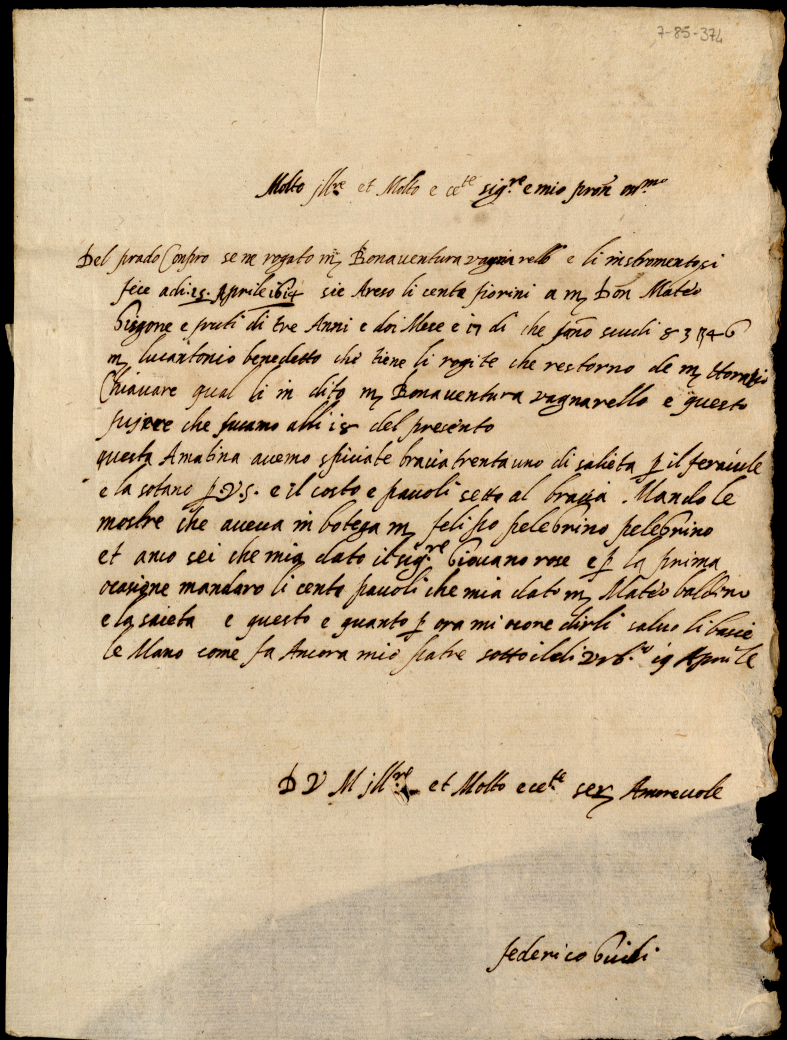 7-85-374
Molto Ill.re et Molto ecc.te sig.re e mio pron
Del prado Conpro se ne rogato m Bonaventura vagnarello e li instromento si
fece adi 15. Aprile 1614 sie Areso li centa fiorini a m Don Mateo
Gigone e fruti di tre Anni e doi Mese e 17 di che sono scudi 83
m lucantonio benedetto che tiene li rogite che restorno de m
Chiavare qual li in dito m Bonaventura vagnarello e questo
che fusamo alli 18 del presento
questa Amatina avemo spiciate bracia trentauno di saieta p il feraiule
e la sotano p V.S. e il costo e pavoli setto al bracia. Mando le
mostre che aveva in botega m felipo pelegrino pelegrino
et anco sei che mia dato il sig.re Giovano rose e p la prima
ocasione mandaro li cento pavoli che mia dato m Mateo baldino
e la saieta e questo e quanto p ora mi ocore dirli salvo li bacie
le Mano come fa Ancora mio patre sotto il di 19 Aprile
D V M Ill.re et Molto ecce.te ser Amorevole
federico Guidi